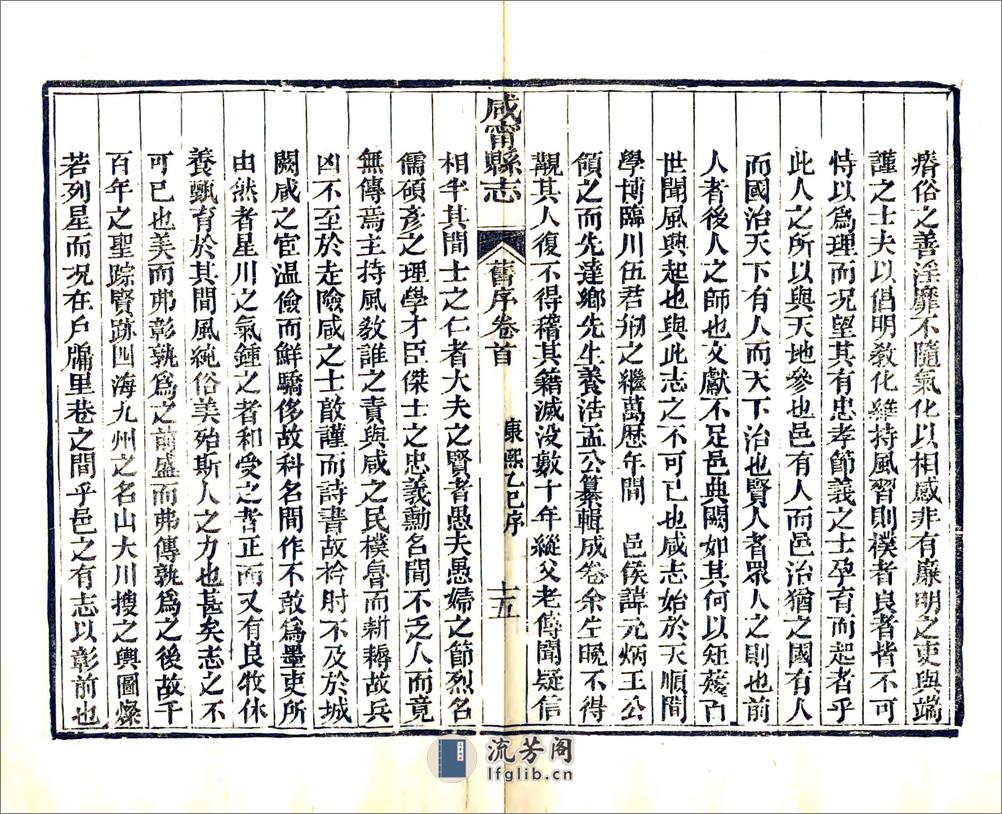 瘠俗之善淫靡不隨氣化以相感非有廉明之吏與端
謹之士夫以倡明教化維持風習則樸者良者皆不可
恃以爲理而况望其有忠孝節義之士孕育而起者乎
此人之所以與天地參也邑有人而邑治猶之國有人
而國治天下有人而天下治也賢人者眾人之則也前
人者後人之師也文獻不足邑典闕如其何以矩矱百
世聞風興起也與此志之不可已也咸志始於天順間
學博臨川伍君礽之繼萬歴年間 邑侯諱元炳王公
領之而先達鄉先生養浩孟公纂輯成卷余生晚不得
覩其人復不得稽其籍滅没數十年縱父老傳聞疑信
咸甯縣志
舊序卷首
康熙乙巳序
十五
相半其間士之仁者大夫之賢者愚夫愚婦之節烈名
儒碩彦之理學才臣傑士之忠義勳名間不乏人而竟
無傳焉主持風教誰之責與咸之民樸魯而新耨故兵
凶不至於走險咸之士敢謹而詩書故衿肘不及於城
闕咸之宦温儉而鮮驕侈故科名間作不敢爲墨吏所
由然者星川之氣鍾之者和受之者正而又有良牧休
養甄育於其間風純俗美殆斯人之力也甚矣志之不
可已也美而弗彰孰爲之前盛而弗傳孰爲之後故千
百年之聖踪賢跡四海九州之名山大川搜之輿圖燦
若列星而况在戶牖里巷之間乎邑之有志以彰前也
流芳阁
lfglib.cn